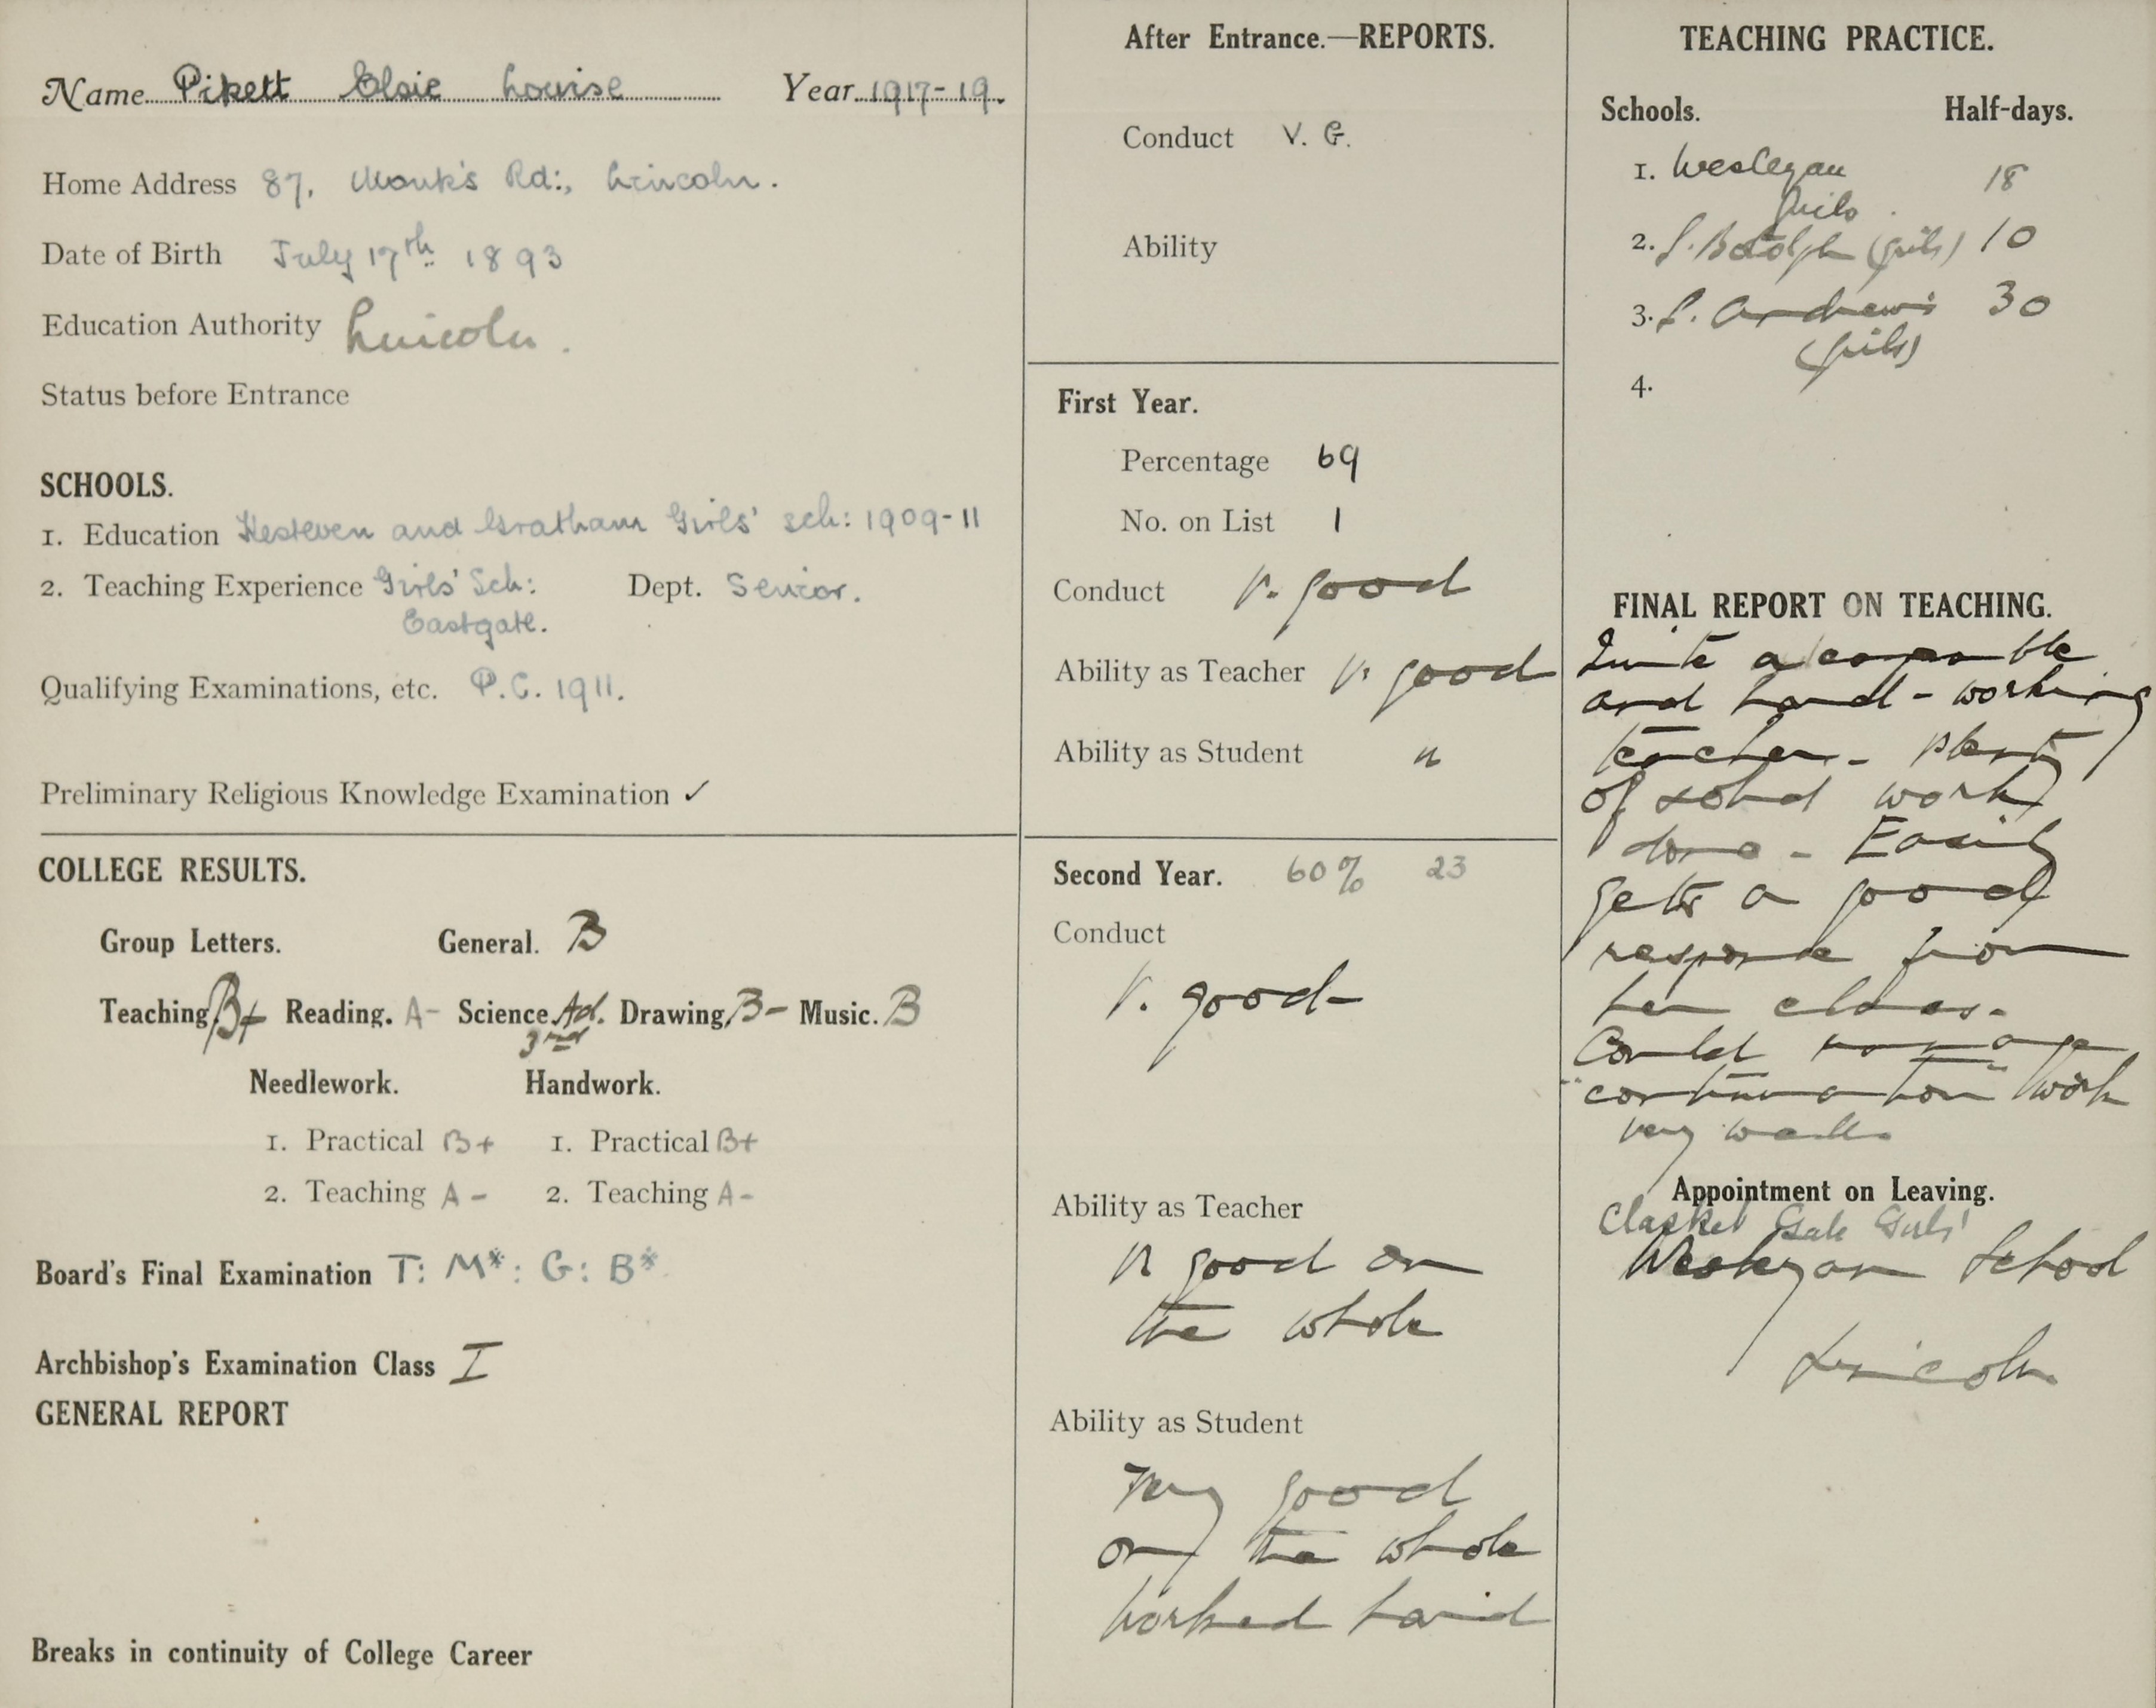 Name Pikett Elsie Louise Year 1917-19.
Home Address 87, Monk's Rd:, Lincoln.
Date of Birth July 17th 1893
Education Authority Lincoln.
Status before Entrance
SCHOOLS.
1. Education Kesteven and Gratham Girls' Sch: 1909-11
2. Teaching Experience Girls' Sch: Dept. Senior.
Eastgate.
Qualifying Examinations, etc. P.C. 1911.
Preliminary Religious Knowledge Examination ✓
COLLEGE RESULTS.
Group Letters. General. B
Teaching. B+ Reading. A- Science. Ad. Drawing. B- Music. B
3rd
Needlework. Handwork.
1. Practical B+ 1. Practical B+
2. Teaching A- 2. Teaching A-
Board's Final Examination T: M*: G: B*
Archbishop's Examination Class I
GENERAL REPORT
Breaks in continuity of College Career
After Entrance.—REPORTS.
Conduct V. G.
Ability
First Year.
Percentage 69
No. on List 1
Conduct V. good
Ability as Teacher V. good
Ability as Student "
Second Year. 60% 23
Conduct
V. good
Ability as Teacher
V good on
the whole
Ability as Student
Very good
on the whole
Worked hard
TEACHING PRACTICE.
Schools. Half-days.
1. Wesleyan 18
Girls.
2. S. Botolph (girls) 10
3. S. Andrew's 30
(girls)
4.
FINAL REPORT ON TEACHING.
Quite a capable
and hard-working
teacher - plenty
of solid work
done - Easily
gets a good
response from
her class.
Could manage
"continuation" work
very well.
Appointment on Leaving.
Clasket Gate Girls'
Wesleyan School
Lincoln